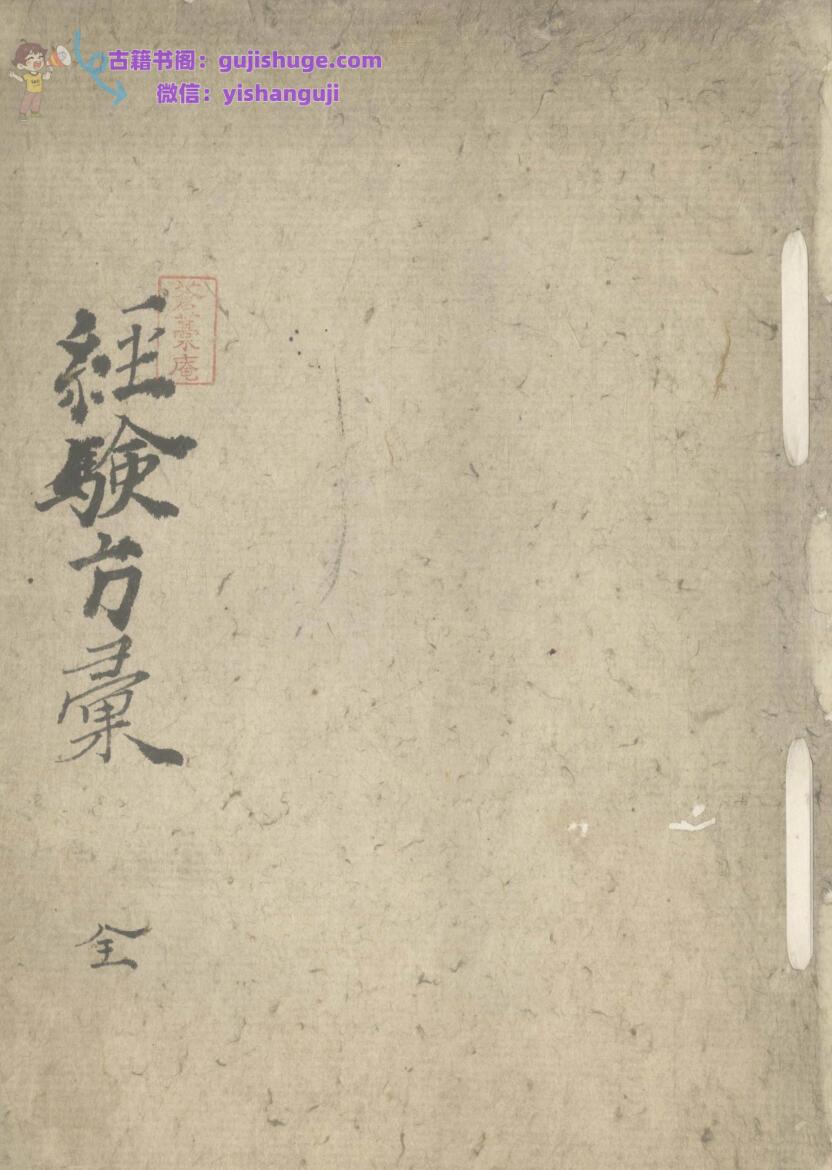 古籍书阁：gujishuge.com
微信：yishanguji
蒼藁庵
経験方彙
全